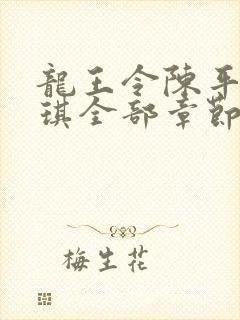 龍王令陳平
琪全部章節
梅生花